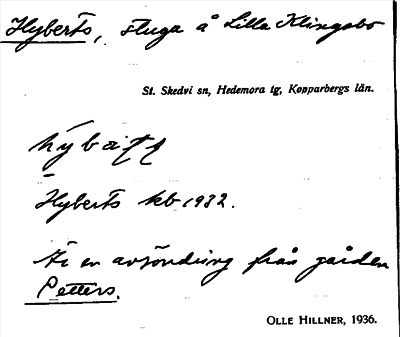 Hyberts, stuga å Lilla Klingsbo
St. Skedvi sn, Hedemora tg, Kopparbergs län.
Hyberts kb 1932.
Är en avsöndring från gården
Petters.
OLLE HILLNER, 1936.